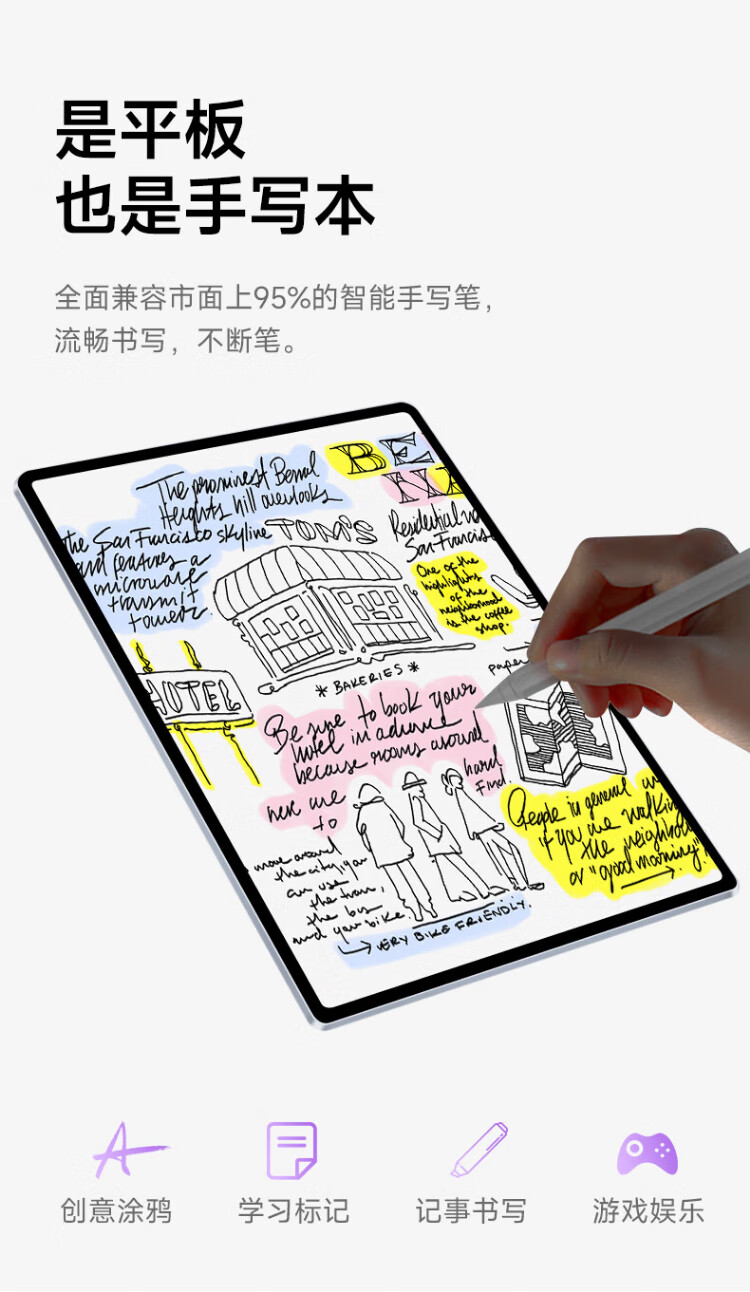 是平板
也是手写本
全面兼容市面上95%的智能手写笔，
流畅书写，不断笔。
The prominest Bernal
Heights hill overlooks
the San Francisco skyline
and features a
microwave
transmit
tower.
BE
N
TOM'S
Residential
San Francis
One of the
highlights
of the
neighborhood
is the coffee
shop.
HOTEL
* BAKERIES *
paper
Be sure to book your
hotel in advance
because rooms around
here are
hard
to
Find.
move around
the city, you
can use
the tram,
the bus
and your bike.
VERY BIKE FRIENDLY.
People in general
if you are walking
the neighbor
or "good morning"
创意涂鸦
学习标记
记事书写
游戏娱乐